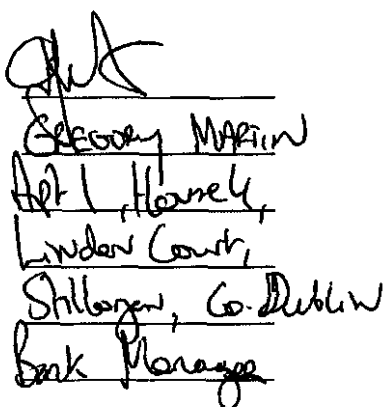 GREGORY MARTIN
Apt 1, House 4,
Linden Court,
Stillorgan, Co. Dublin
Bank Manager